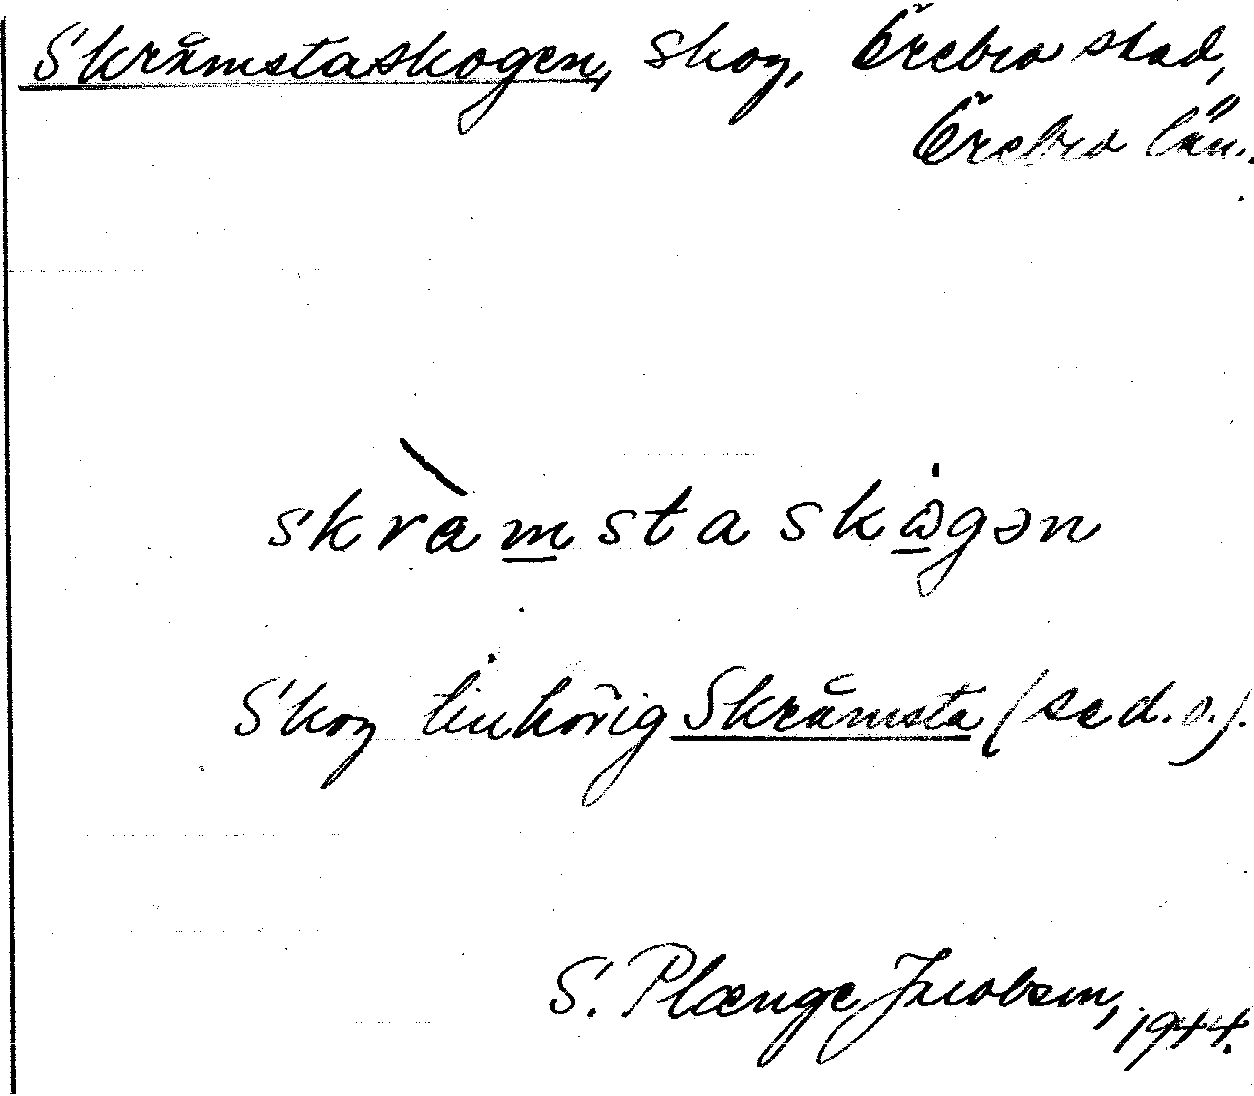 Skråmstaskogen, skog, Örebro stad,
Örebro län.
skràmstaskωgən
Skog tillhörig Skråmsta (se d. o.).
S. Plænge Jacobsen, 1944.